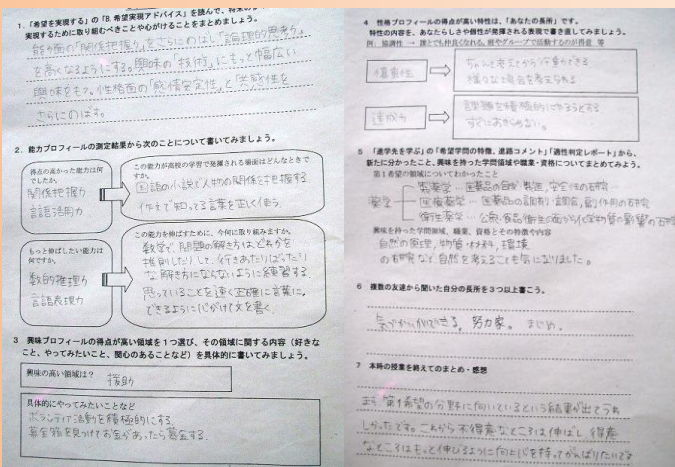 1．「希望を実現する」の「B. 希望実現アドバイス」を読んで、将来の
実現するために取り組むべきことや心がけることをまとめましょう。
能力面の「関係把握力」をさらにのばし「論理的思考力」
を高くなるようにする。興味の「技術」にもっと幅広い
興味をもつ。性格面の「感情安定性」と「共感性」を
さらにのばす。
2．能力プロフィールの測定結果から次のことについて書いてみましょう。
得点の高かった能力は何
でしたか。
関係把握力
言語活用力
この能力が高校の学習で発揮される場面はどんなときで
すか。
国語の小説で人物の関係を把握する
作文で知ってる言葉を正しく使う。
もっと伸ばしたい能力は
何ですか。
数的推理力
言語表現力
この能力を伸ばすために、今何に取り組みますか。
数学で、問題の解き方は
推測したりして、行きあたりばったり
な解き方にならないように練習する。
思っていることを速く正確に言葉に
できるように心がけて文を書く。
3　興味プロフィールの得点が高い領域を１つ選び、その領域に関する内容（好きな
こと、やってみたいこと、関心のあることなど）を具体的に書いてみましょう。
興味の高い領域は？　援助
具体的にやってみたいことなど
ボランティア活動を積極的にする。
募金箱を見つけてお金があったら募金する。
4　性格プロフィールの得点が高い特性は、「あなたの長所」です。
特性の内容を、あなたらしさや個性が発揮される表現で書き直してみましょう。
例：協調性 → 誰とでも仲良くなれる。班やグループで活動するのが得意　等
慎重性
ちゃんと考えてから行動できる
様々な場合を考えられる
達成力
課題を積極的にやろうとする
すぐにあきらめない。
5　「進学先を学ぶ」の「希望学問の特徴、進路コメント」「適性判定レポート」から、
新たに分かったこと、興味を持った学問領域や職業・資格についてまとめてみよう。
第１希望の領域についてわかったこと
薬学
製薬学 … 医薬品の合成・製造、安全性の研究…
医療薬学 … 医薬品の調剤・調合、副作用の研究
衛生薬学 … 公衆・食品衛生の面から化学物質の影響の研究
興味を持った学問領域、職業、資格とその特徴や内容
自然の原理、物質・材料、環境
の研究など自然を考えることも気になりました。
6　複数の友達から聞いた自分の長所を３つ以上書こう。
気づかいができる，努力家。まじめ。
7　本時の授業を終えてのまとめ・感想
第1希望の分野に向いているという結果が出てうれ
しかったです。これから不得意なところは伸ばし 得意
なところはもっと伸びるように向上心を持ってがんばりたいです